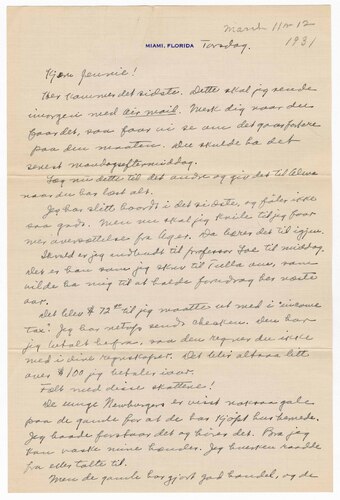 March 11 or 12
1931
MIAMI, FLORIDA Torsdag.
Kjære Jennie!
Her kommer det sidste. Dette skal jeg sende
imorgen med air mail. Merk dig naar du
faar det, saa faar vi se om det gaar fortere
paa den maaten. Du skulde ha det
senest mandagseftermiddag.
Læg nu dette til det andre og giv det til
naar du har læst alt.
Jeg har slitt haardt i det sidste, og føler ikke
saa godt. Men nu skal jeg hvile til jeg faar
mer oversættelse fra Ager. Da bærer det til igjen.
Ikveld er jeg indbudt til professor til middag.
Det er han som jeg skrev til Tulla om, som
vilde ha mig til at holde foredrag her næste
aar.
Det blev $72 til jeg maatte ut med i "income
tax". Jeg har netop sendt checken. Den har
jeg betalt herfra, saa den regner du ikke
med i dine regnskaper. Det blir altsaa litt
over $100 jeg betaler iaar.
Fælt med disse skattene!
De unge Newburgers er visst nokså gale
paa de gamle for at de har kjøpt hus hernede.
Jeg baade forstaar det og hører det. Bra jeg
kan vaske mine hænder. Jeg hverken raadde
fra eller talte til.
Men de gamle har gjort god handel, og de